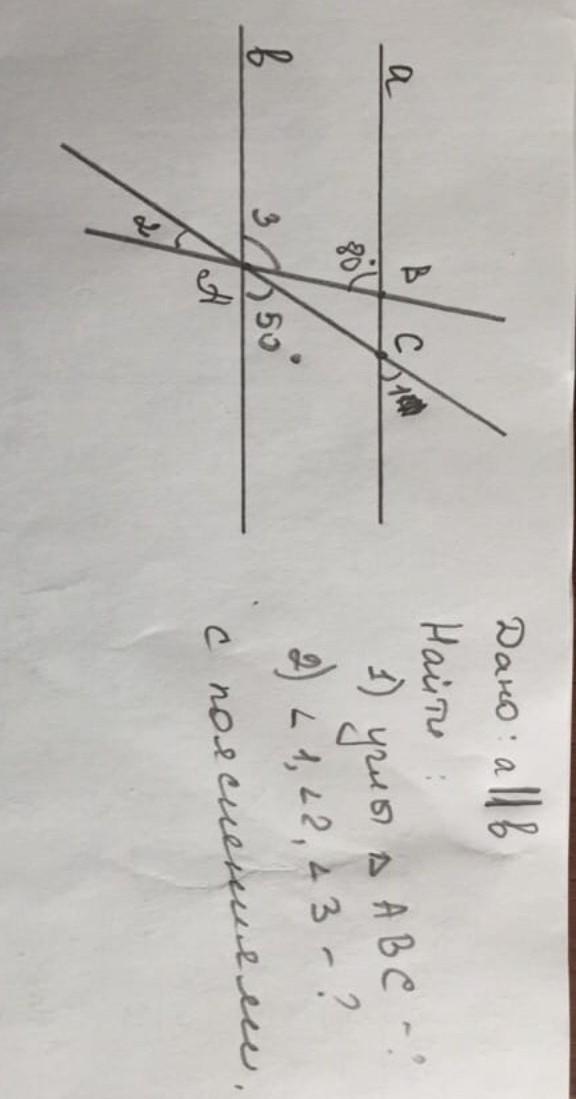 a
b
B
C
80°
1
3
50°
A
2
Дано: a||b
Найти:
1) углы Δ ABC - ?
2) ∠1, ∠2, ∠3 - ?
с пояснениями.